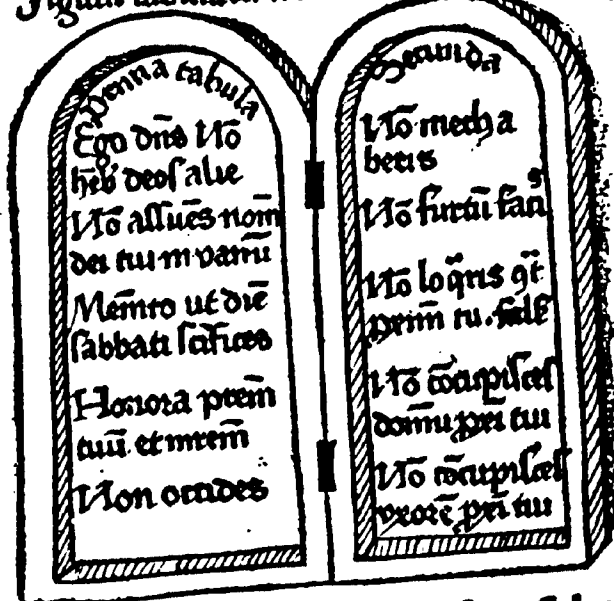 Prima tabula
Ego dn̄s Nō
hēb' deos alie
Nō assūes nom̄
dei tui in vanū
Mem̄to ut diē
sabbati sc̄ifices
Honora prēm
tuū et mrēm
Non occides
Secunda
Nō mecha
beris
Nō furtū faci꣫
Nō loq̄ris 9t̄
prīm tu. fals̄
Nō cōcupisces
domū prī tui
Nō cōcupisces
uxorē prī tui